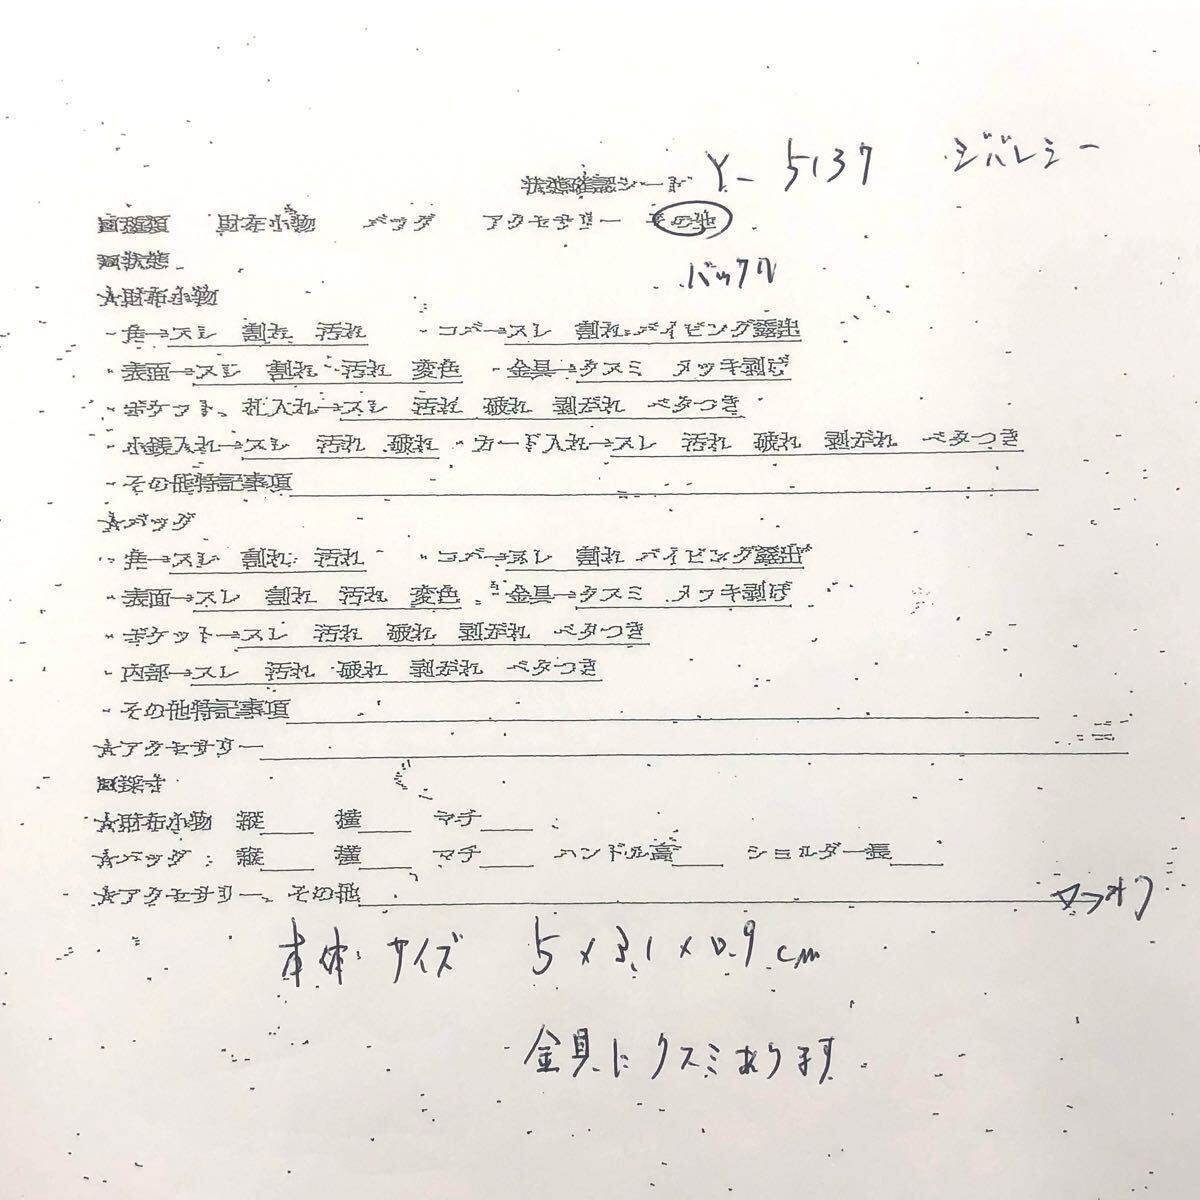 状態確認シート Y- 5137 ジバンシー
■種類 財布小物 バッグ アクセサリー その他
バックル
■状態
★財布小物
・角→スレ 割れ 汚れ ・コバ→スレ 割れ パイピング露出
・表面→スレ 割れ 汚れ 変色 ・金具→クスミ メッキ剥げ
・ポケット、札入れ→スレ 汚れ 破れ 剥がれ ベタつき
・小銭入れ→スレ 汚れ 破れ ・カード入れ→スレ 汚れ 破れ 剥がれ ベタつき
・その他特記事項
★バッグ
・角→スレ 割れ 汚れ ・コバ→スレ 割れ パイピング露出
・表面→スレ 割れ 汚れ 変色 ・金具→クスミ メッキ剥げ
・ポケット→スレ 汚れ 破れ 剥がれ ベタつき
・内部→スレ 汚れ 破れ 剥がれ ベタつき
・その他特記事項
★アクセサリー
■採寸
★財布小物 縦 横 マチ
★バッグ:縦 横 マチ ハンドル高 ショルダー長
★アクセサリー、その他
本体サイズ 5×3.1×0.9cm
金具にクスミあります